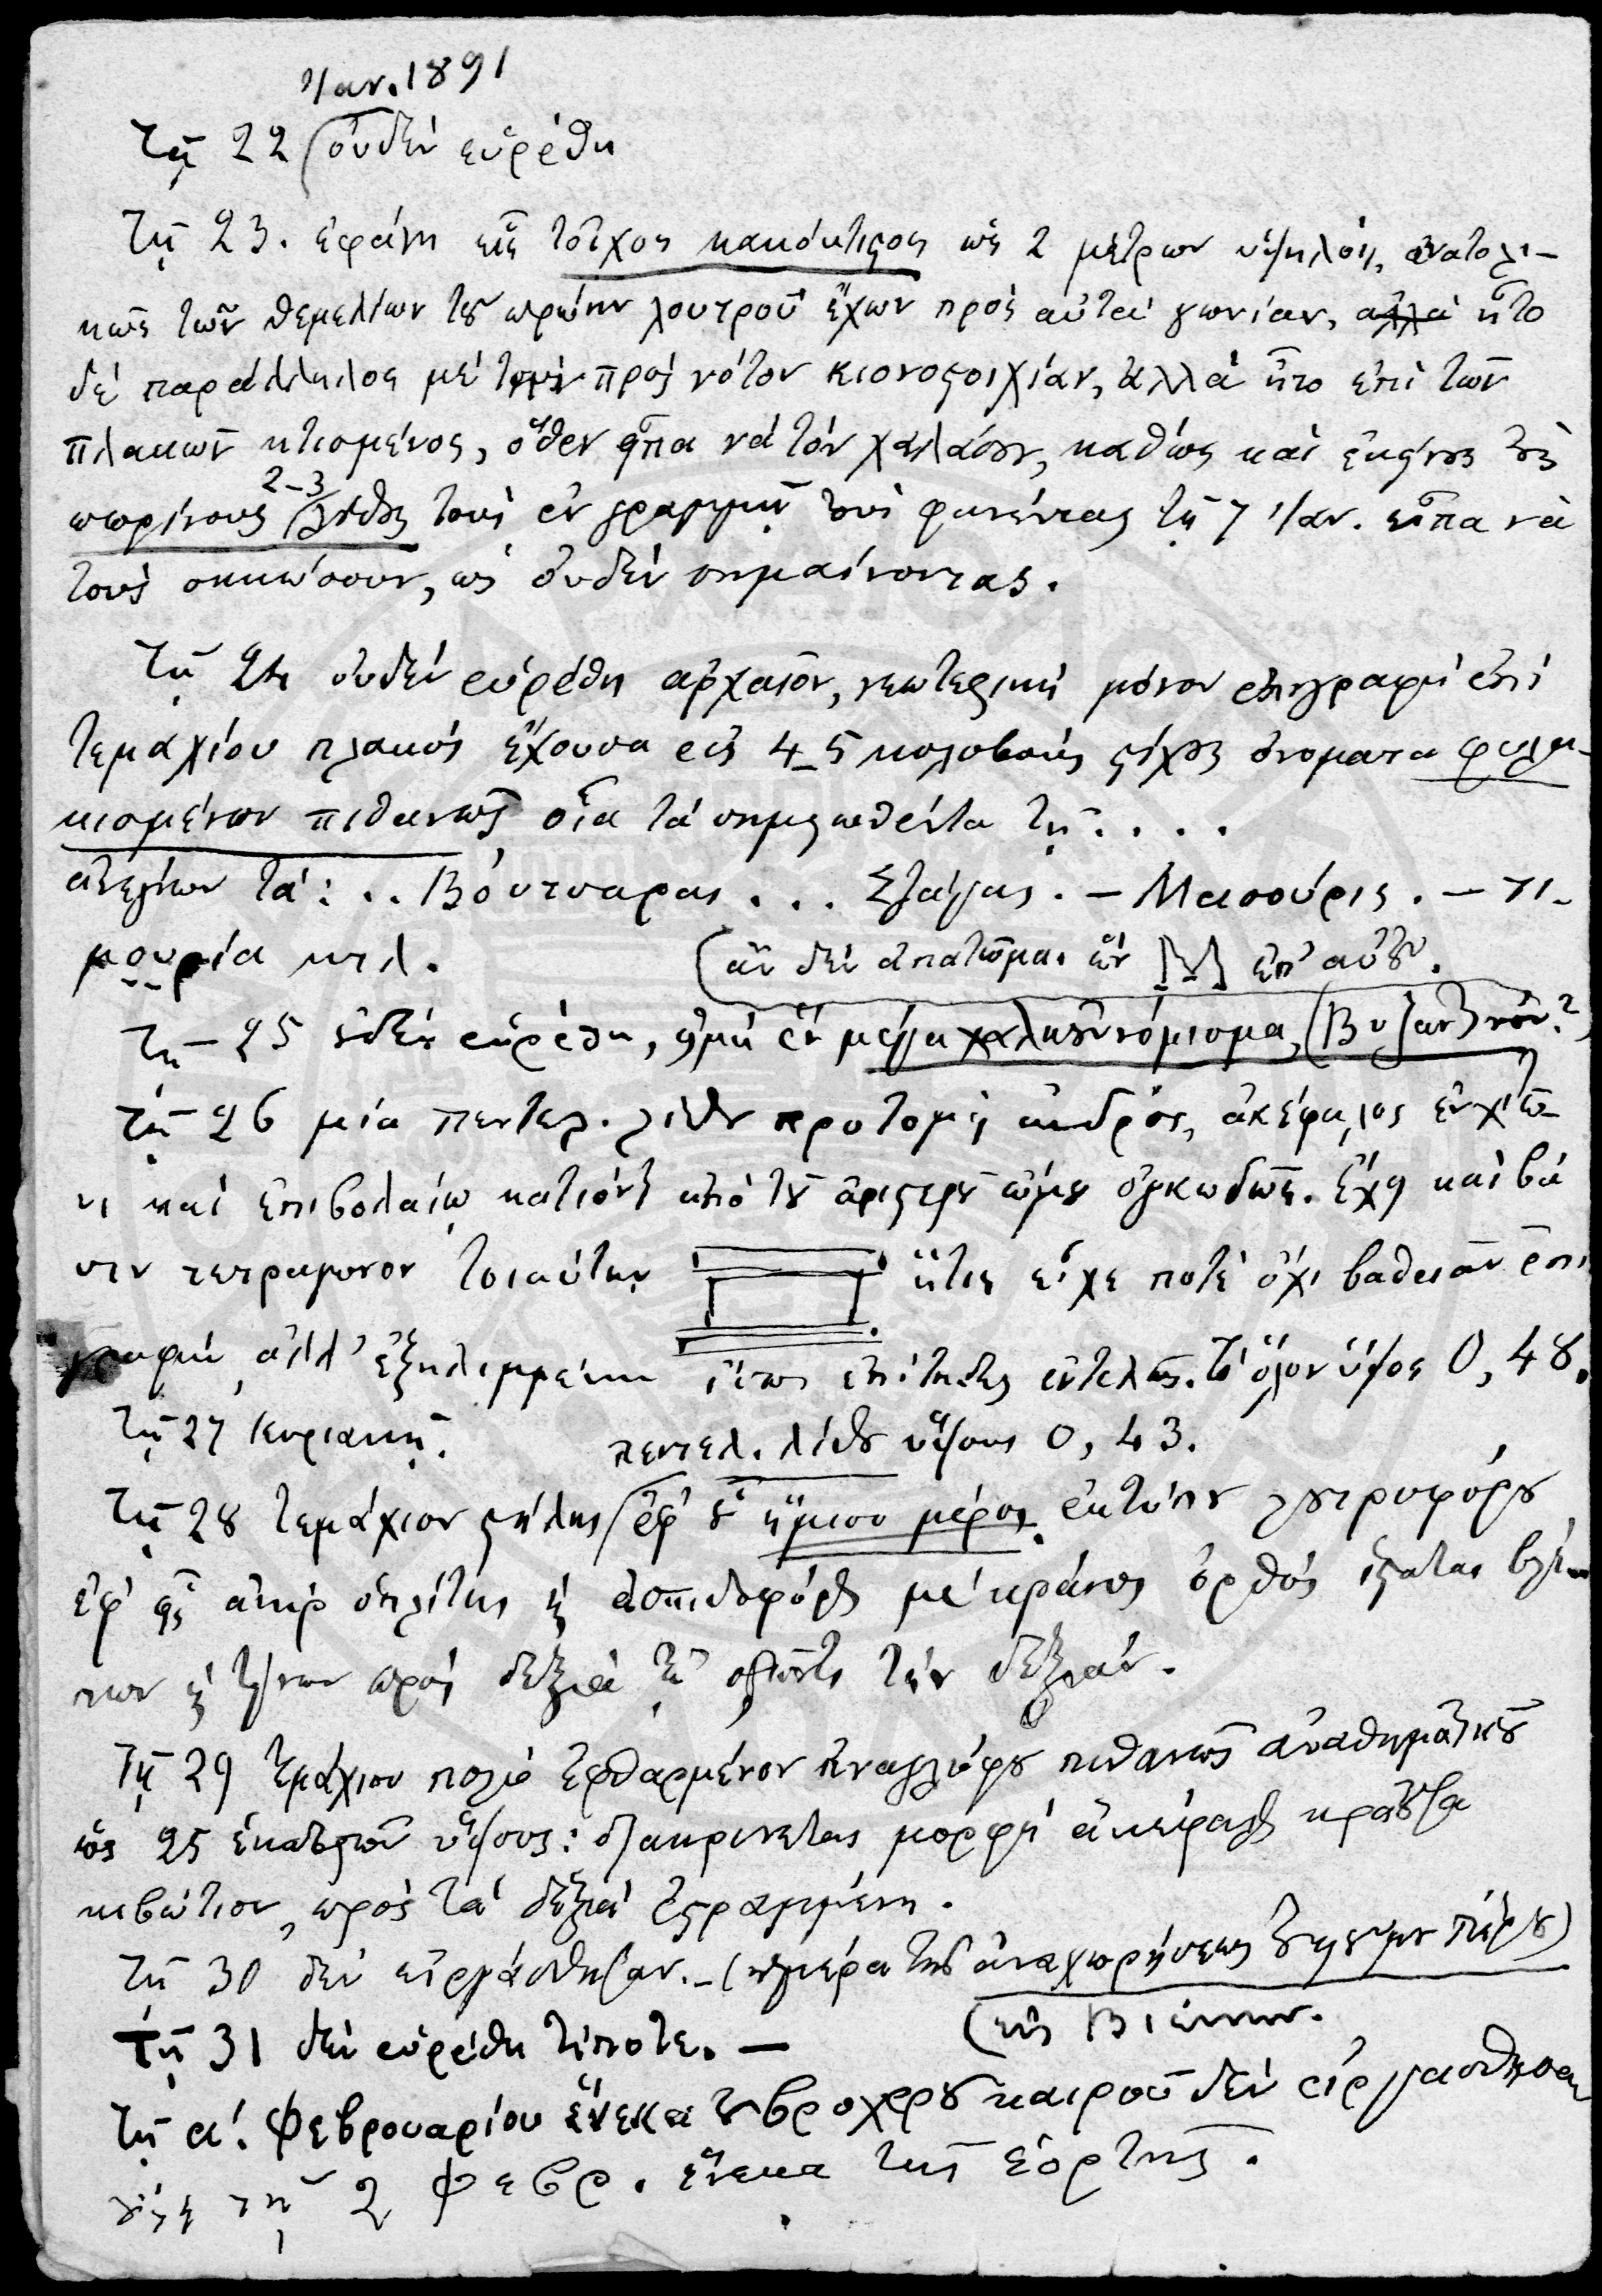 Ἰαν. 1891
Τῇ 22 οὐδὲν εὑρέθη
Τῇ 23. ἐφάνη εἷς τοῖχος κακόκτιστος ὡς 2 μέτρων ὑψηλὸς, ἀνατολι-
κῶς τῶν θεμελίων τοῦ πρώην λουτροῦ ἔχων πρὸς αὐτὰ γωνίαν, ἀλλὰ ἦτο
δὲ παράλληλος μὲ τὴν πρὸς νότον κιονοστοιχίαν, ἀλλὰ ἦτο ἐπὶ τῶν
πλακῶν κτισμένος, ὅθεν εἶπα νὰ τὸν χαλάσουν, καθὼς καὶ ἐκείνους τοὺς
πωρίνους 2-3 λίθους τοὺς ἐν γραμμῇ τοὺς φανέντας τῇ 7 Ἰαν. εἶπα νὰ
τοὺς σηκώσουν, ὡς οὐδὲν σημαίνοντας.
Τῇ 24 οὐδὲν εὑρέθη ἀρχαῖον, νεωτερικὴ μόνον ἐπιγραφὴ ἐπὶ
τεμαχίου πλακὸς ἔχουσα εἰς 4-5 κολοβοὺς στίχους ὀνόματα φυλα-
κισμένων πιθανῶς οἷα τὰ σημειωθέντα τῇ....
τά: .. Βόυτσαρας ... - Μασούρις. - τι-
μουρία κτλ. (ἂν δὲν ἀπατῶμαι ἓν Μ ἐπ' αὐτοῦ.
Τῇ 25 οὐδὲν εὑρέθη, εἰμὴ ἓν μέγα χαλκοῦν νόμισμα, (Βυζαντινόν?)
Τῇ 26 μία πεντελ. λίθου προτομὴ ἀνδρός, ἀκέφαλος ἐν χιτῶ-
νι καὶ ἐπιβολαίῳ κατιόντι ἀπὸ τοῦ ἀριστεροῦ ὤμου ὀγκωδῶς. Ἔχει καὶ βά
σιν τετράγωνον τοιαύτην ἥτις εἶχε ποτὲ ὄχι βαθεῖαν ἐπι
γραφὴν, ἀλλ' ἐξηλειμμένην ἴσως ἐπίτηδες ἐντελῶς. τὸ ὅλον ὕψος 0,48.
Τῇ 27 Κυριακῇ.
πεντελ. λίθου ὕψους 0,43.
Τῇ 28 τεμάχιον στήλης ἐφ' οὗ ἥμισυ μέρος ἐκτύπου λουτροφόρου
ἐφ' ἧς ἀνὴρ ὁπλίτης ἢ ἀσπιδοφόρος μὲ κράνος ὀρθὸς ἵσταται βλέ
πων ἢ τείνων πρὸς δεξιὰ τὴν δεξιάν.
Τῇ 29 τεμάχιον πολὺ ἐφθαρμένον ἀναγλύφου πιθανῶς ἀναθηματικοῦ
ὡς 25 ἑκατοστῶν ὕψους: διακρίνεται μορφὴ ἀκέφαλος κρατοῦσα
κιβώτιον, πρὸς τὰ δεξιὰ ἐστραμμένη.
Τῇ 30 δὲν εἰργάσθησαν. - (ἡμέρα τῆς ἀναχωρήσεως τοῦ υἱοῦ μου Πέτρου)
(εἰς Βιέννην.
Τῇ 31 δὲν εὑρέθη τίποτε. -
Τῇ α΄. Φεβρουαρίου ἕνεκα τοῦ βροχεροῦ καιροῦ δὲν εἰργάσθησαν
οὔτε τῇ 2 Φεβρ. ἕνεκα τῆς ἑορτῆς.